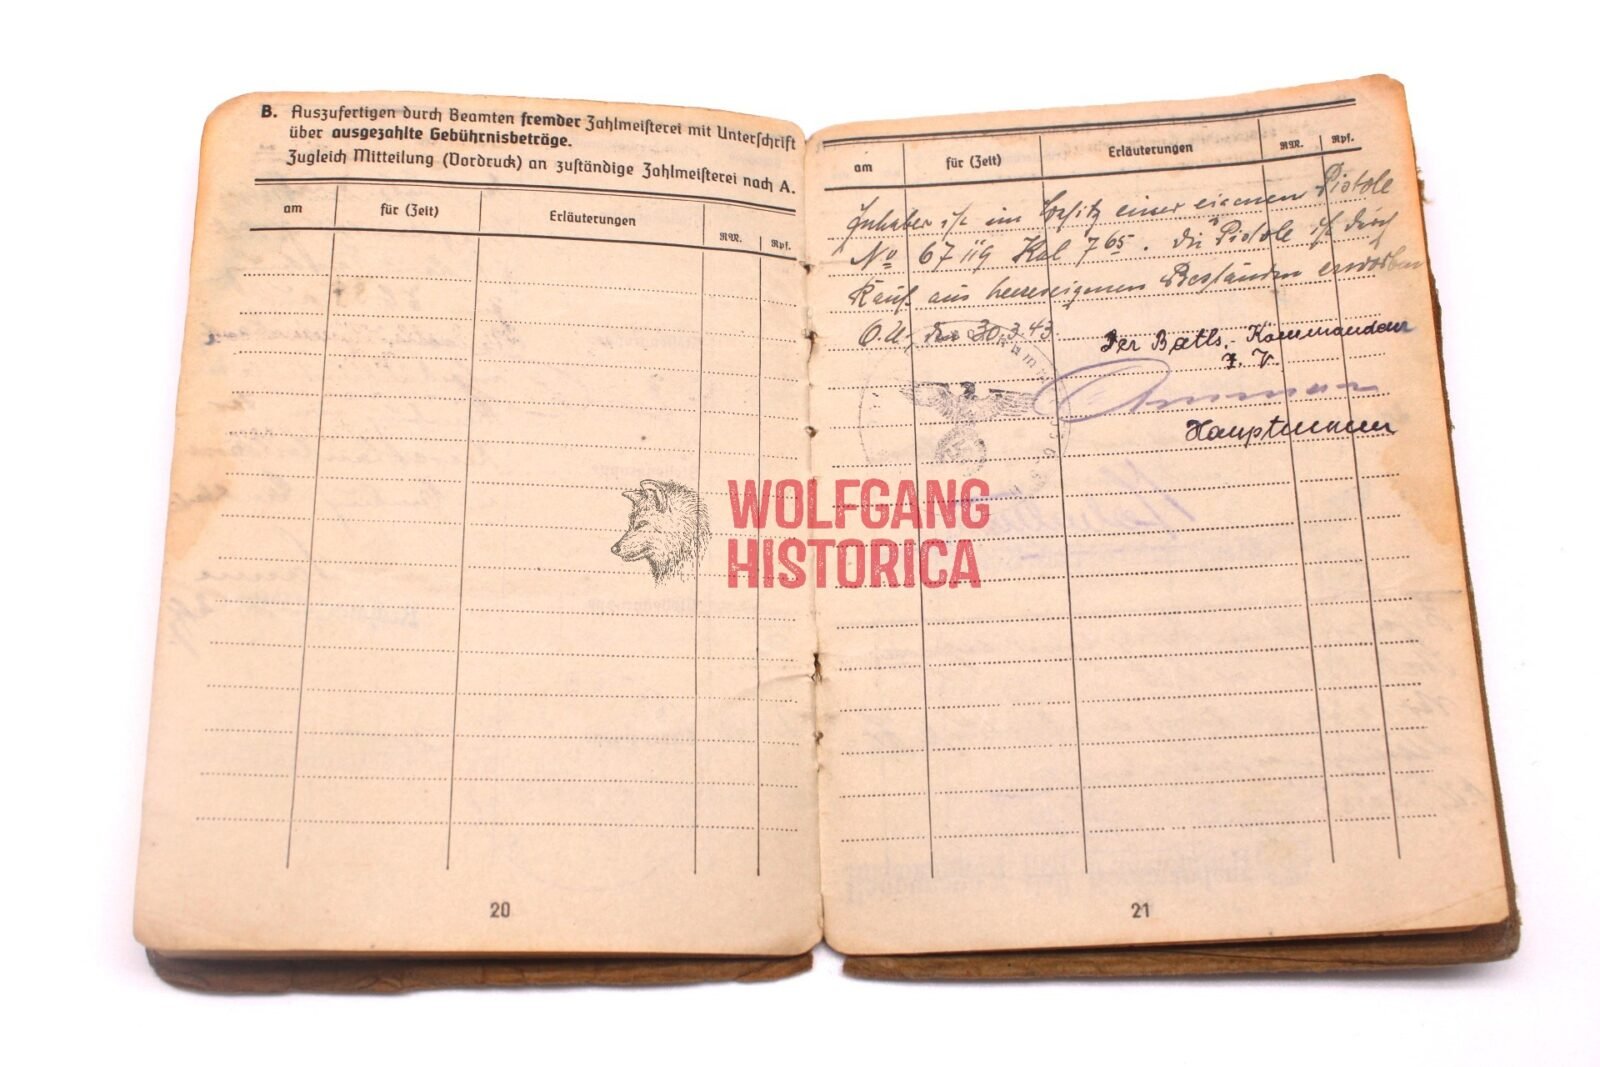 B. Auszufertigen durch Beamten fremder Zahlmeisterei mit Unterschrift
über ausgezahlte Gebührnisbeträge.
Zugleich Mitteilung (Vordruck) an zuständige Zahlmeisterei nach A.
am für (Zeit) Erläuterungen RM. Rpf.
20
am für (Zeit) Erläuterungen RM. Rpf.
Inhaber ist im Besitz einer eigenen Pistole
No 67 Kal 7 65. die Pistole ist durch
Kauf aus heereseigenen Beständen erworben
O.U., den 30.3.43.
Der Batls.-Kommandeur
I.V.
Hauptmann
21
WOLFGANG
HISTORICA